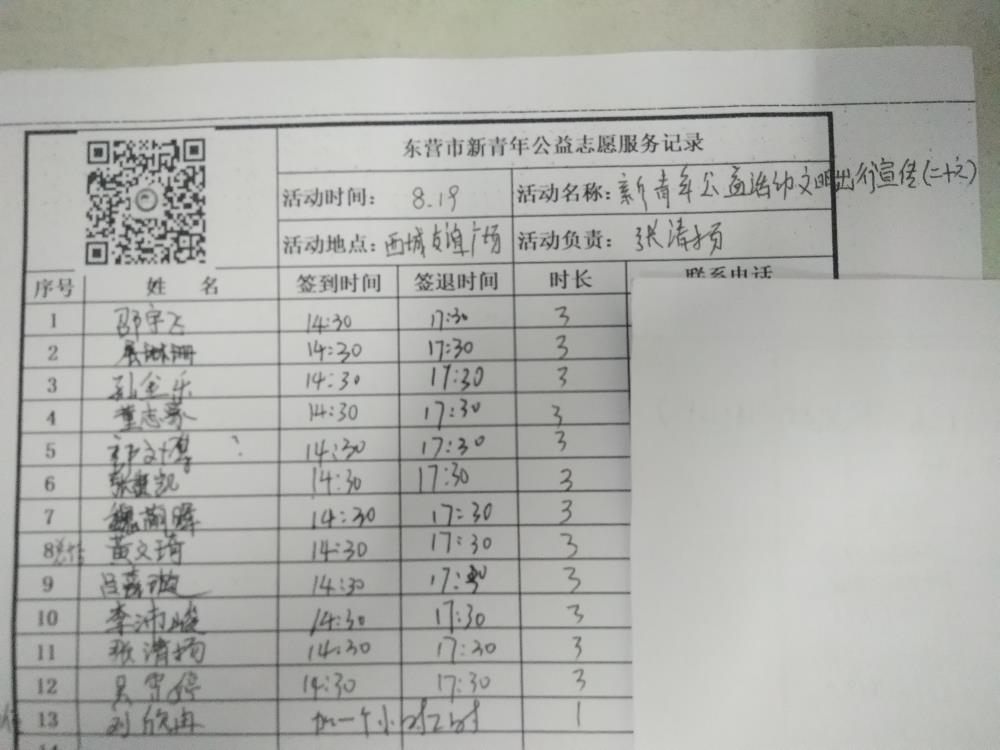 东营市新青年公益志愿服务记录
活动时间： 8.19 活动名称：新青年公益活动文明出行宣传(二十六)
活动地点：西城友谊广场 活动负责： 张清扬
序号 姓 名 签到时间 签退时间 时长 联系电话
1 邵宇飞 14:30 17:30 3
2 14:30 17:30 3
3 14:30 17:30 3
4 董志豪 14:30 17:30 3
5 14:30 17:30 3
6 14:30 17:30 3
7 14:30 17:30 3
8 黄文琦 14:30 17:30 3
9 14:30 17:30 3
10 李沛峻 14:30 17:30 3
11 张清扬 14:30 17:30 3
12 14:30 17:30 3
13 刘欣冉 加一个小时工时 1